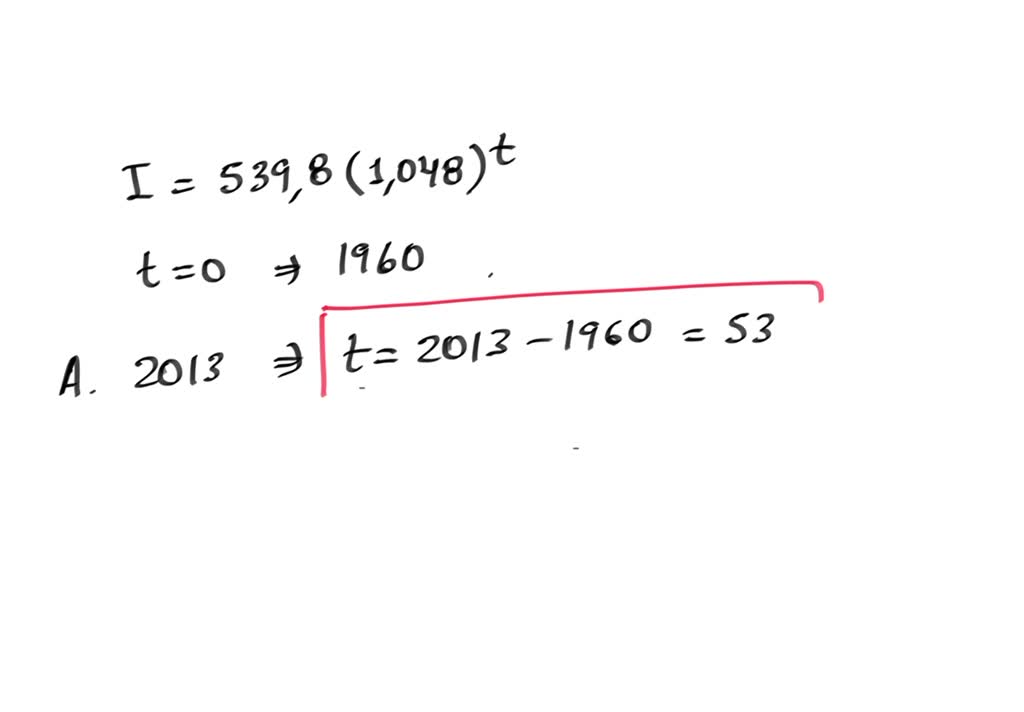 I = 539,8 (1,048)^t
t = 0 ⇒ 1960
A. 2013 ⇒ t = 2013 - 1960 = 53